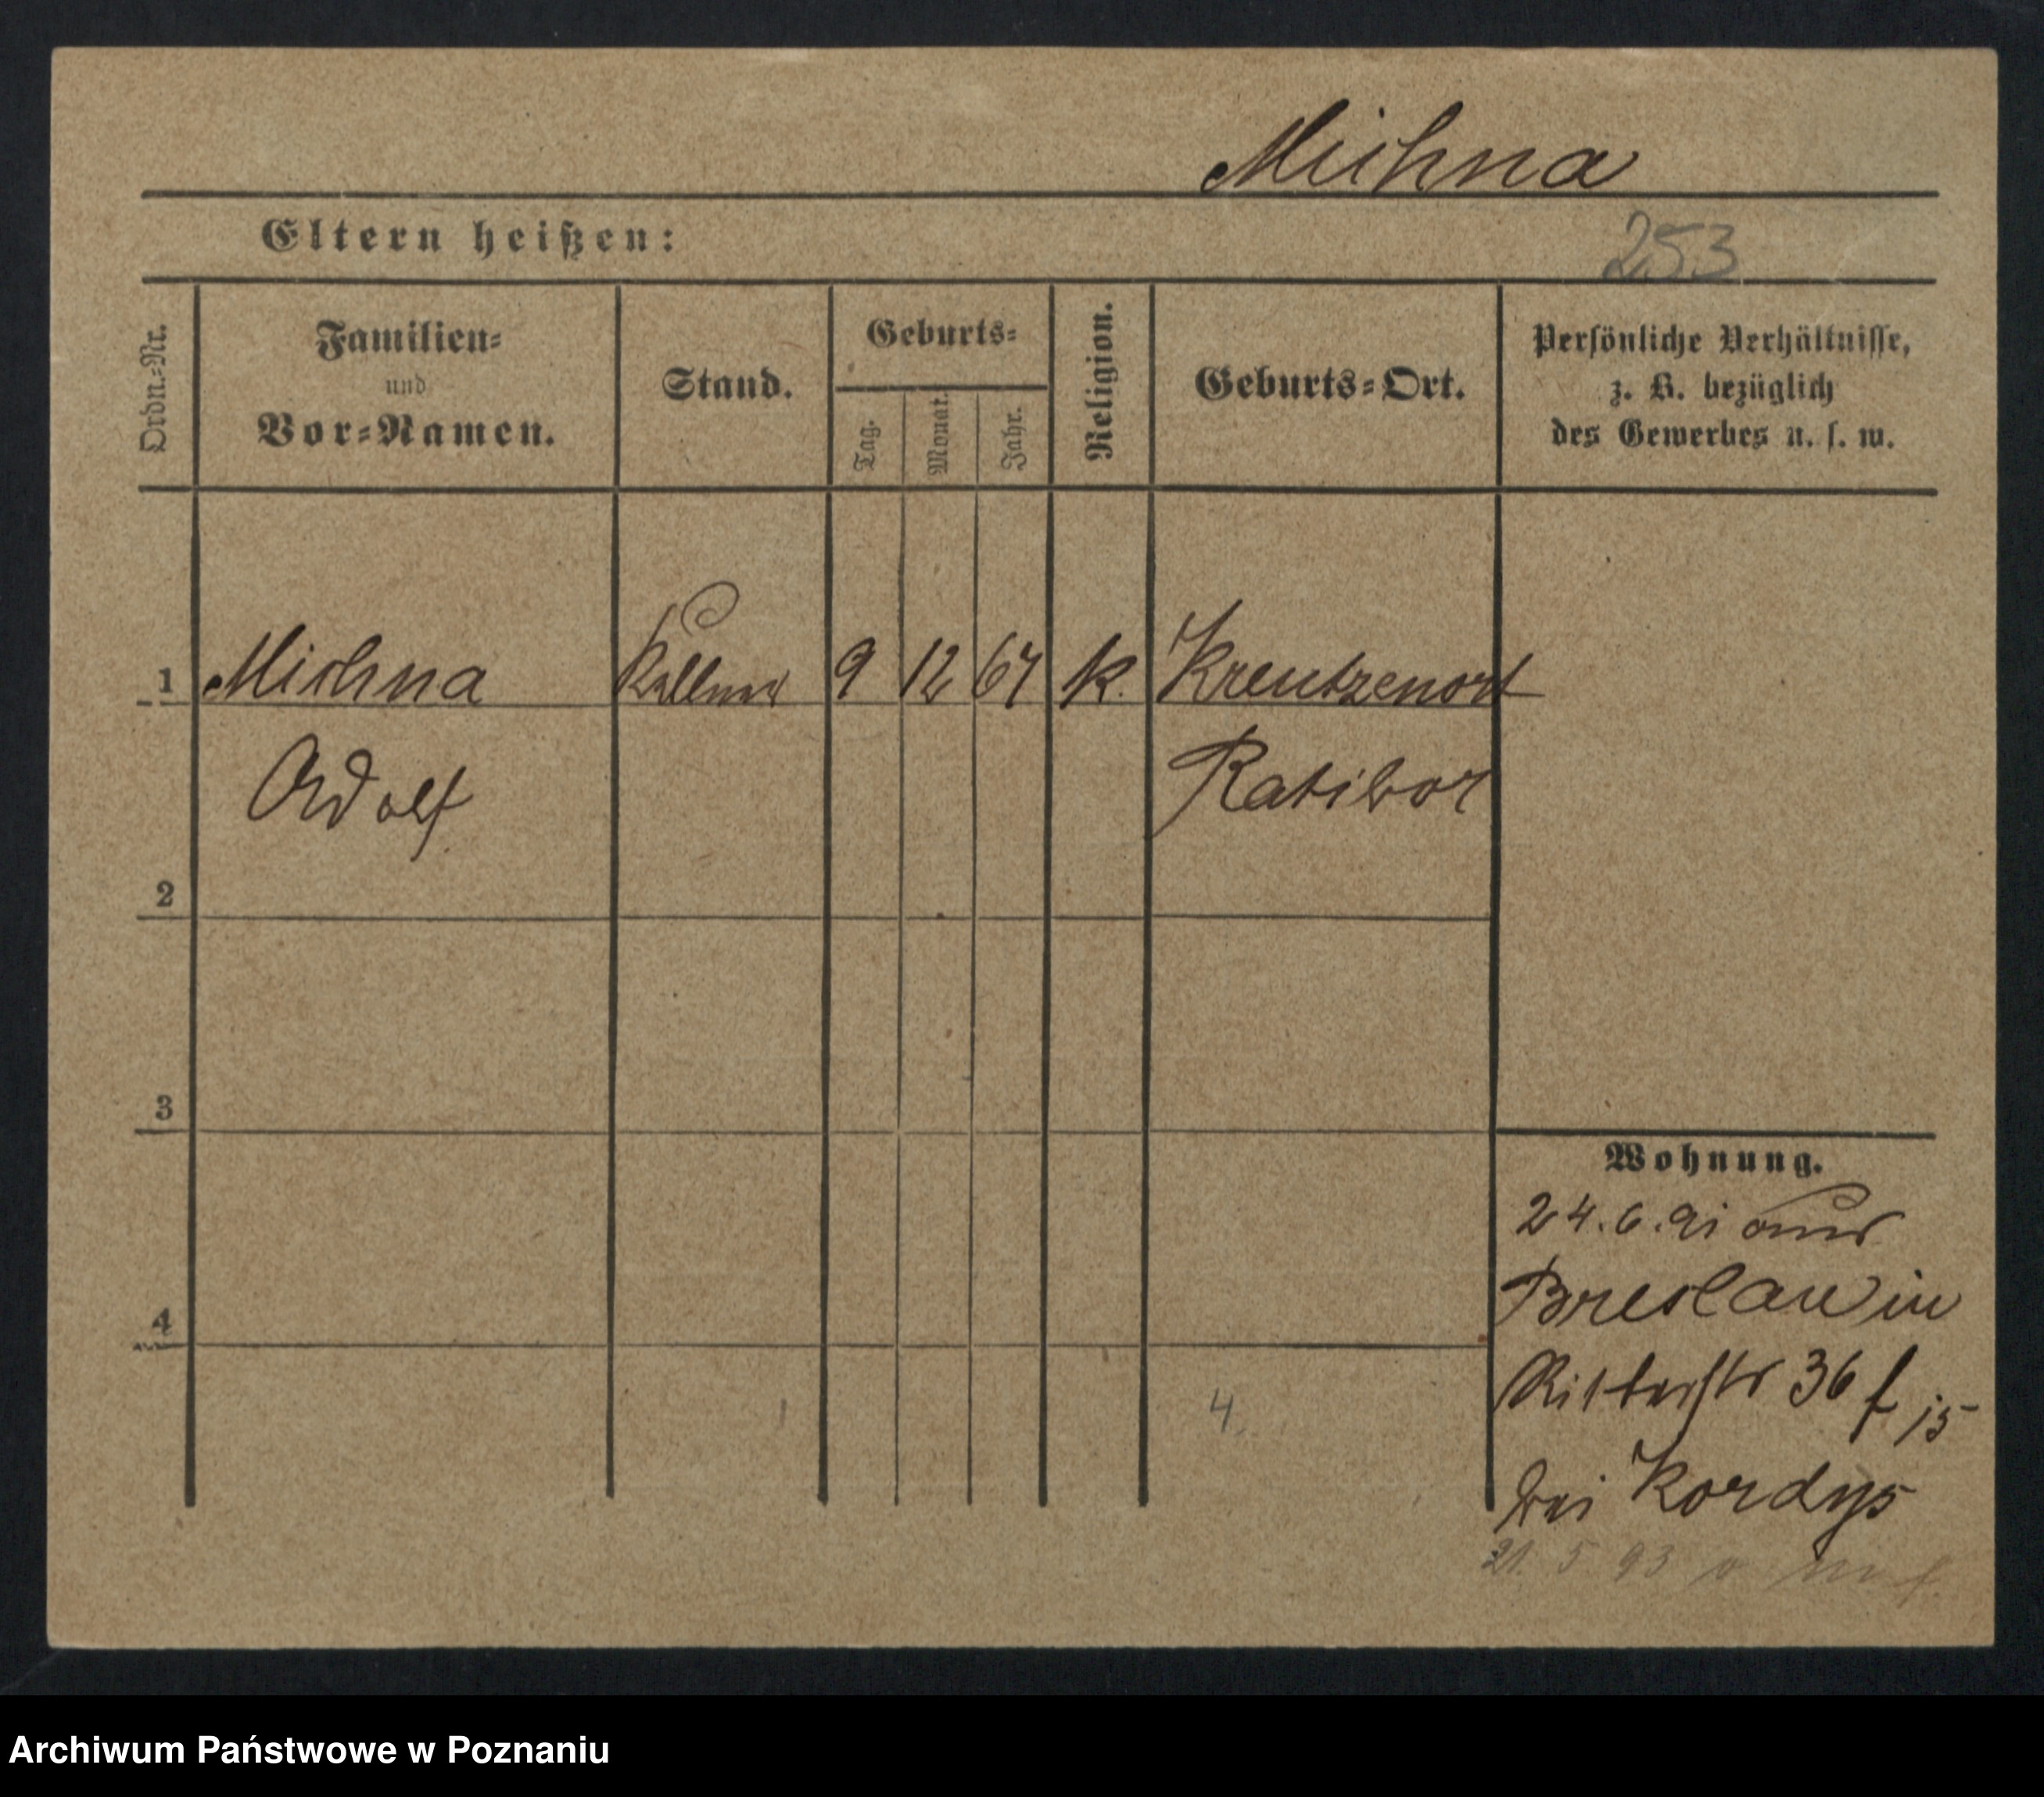 Michna
Eltern heißen:
253
Ordn.-Nr.
Familien-
und
Vor-Namen.
Stand.
Geburts-
Tag.
Monat.
Jahr.
Religion.
Geburts-Ort.
Persönliche Verhältnisse,
z. B. bezüglich
des Gewerbes u. s. w.
1 Michna Kellner 9 12 67 k. Kreutzenort
Adolf Ratibor
2
3
4
Wohnung.
24.6.91 aus
Breslau in
Ritterstr 36 f 15
bei Kordys
21. 5 93
4
Archiwum Państwowe w Poznaniu